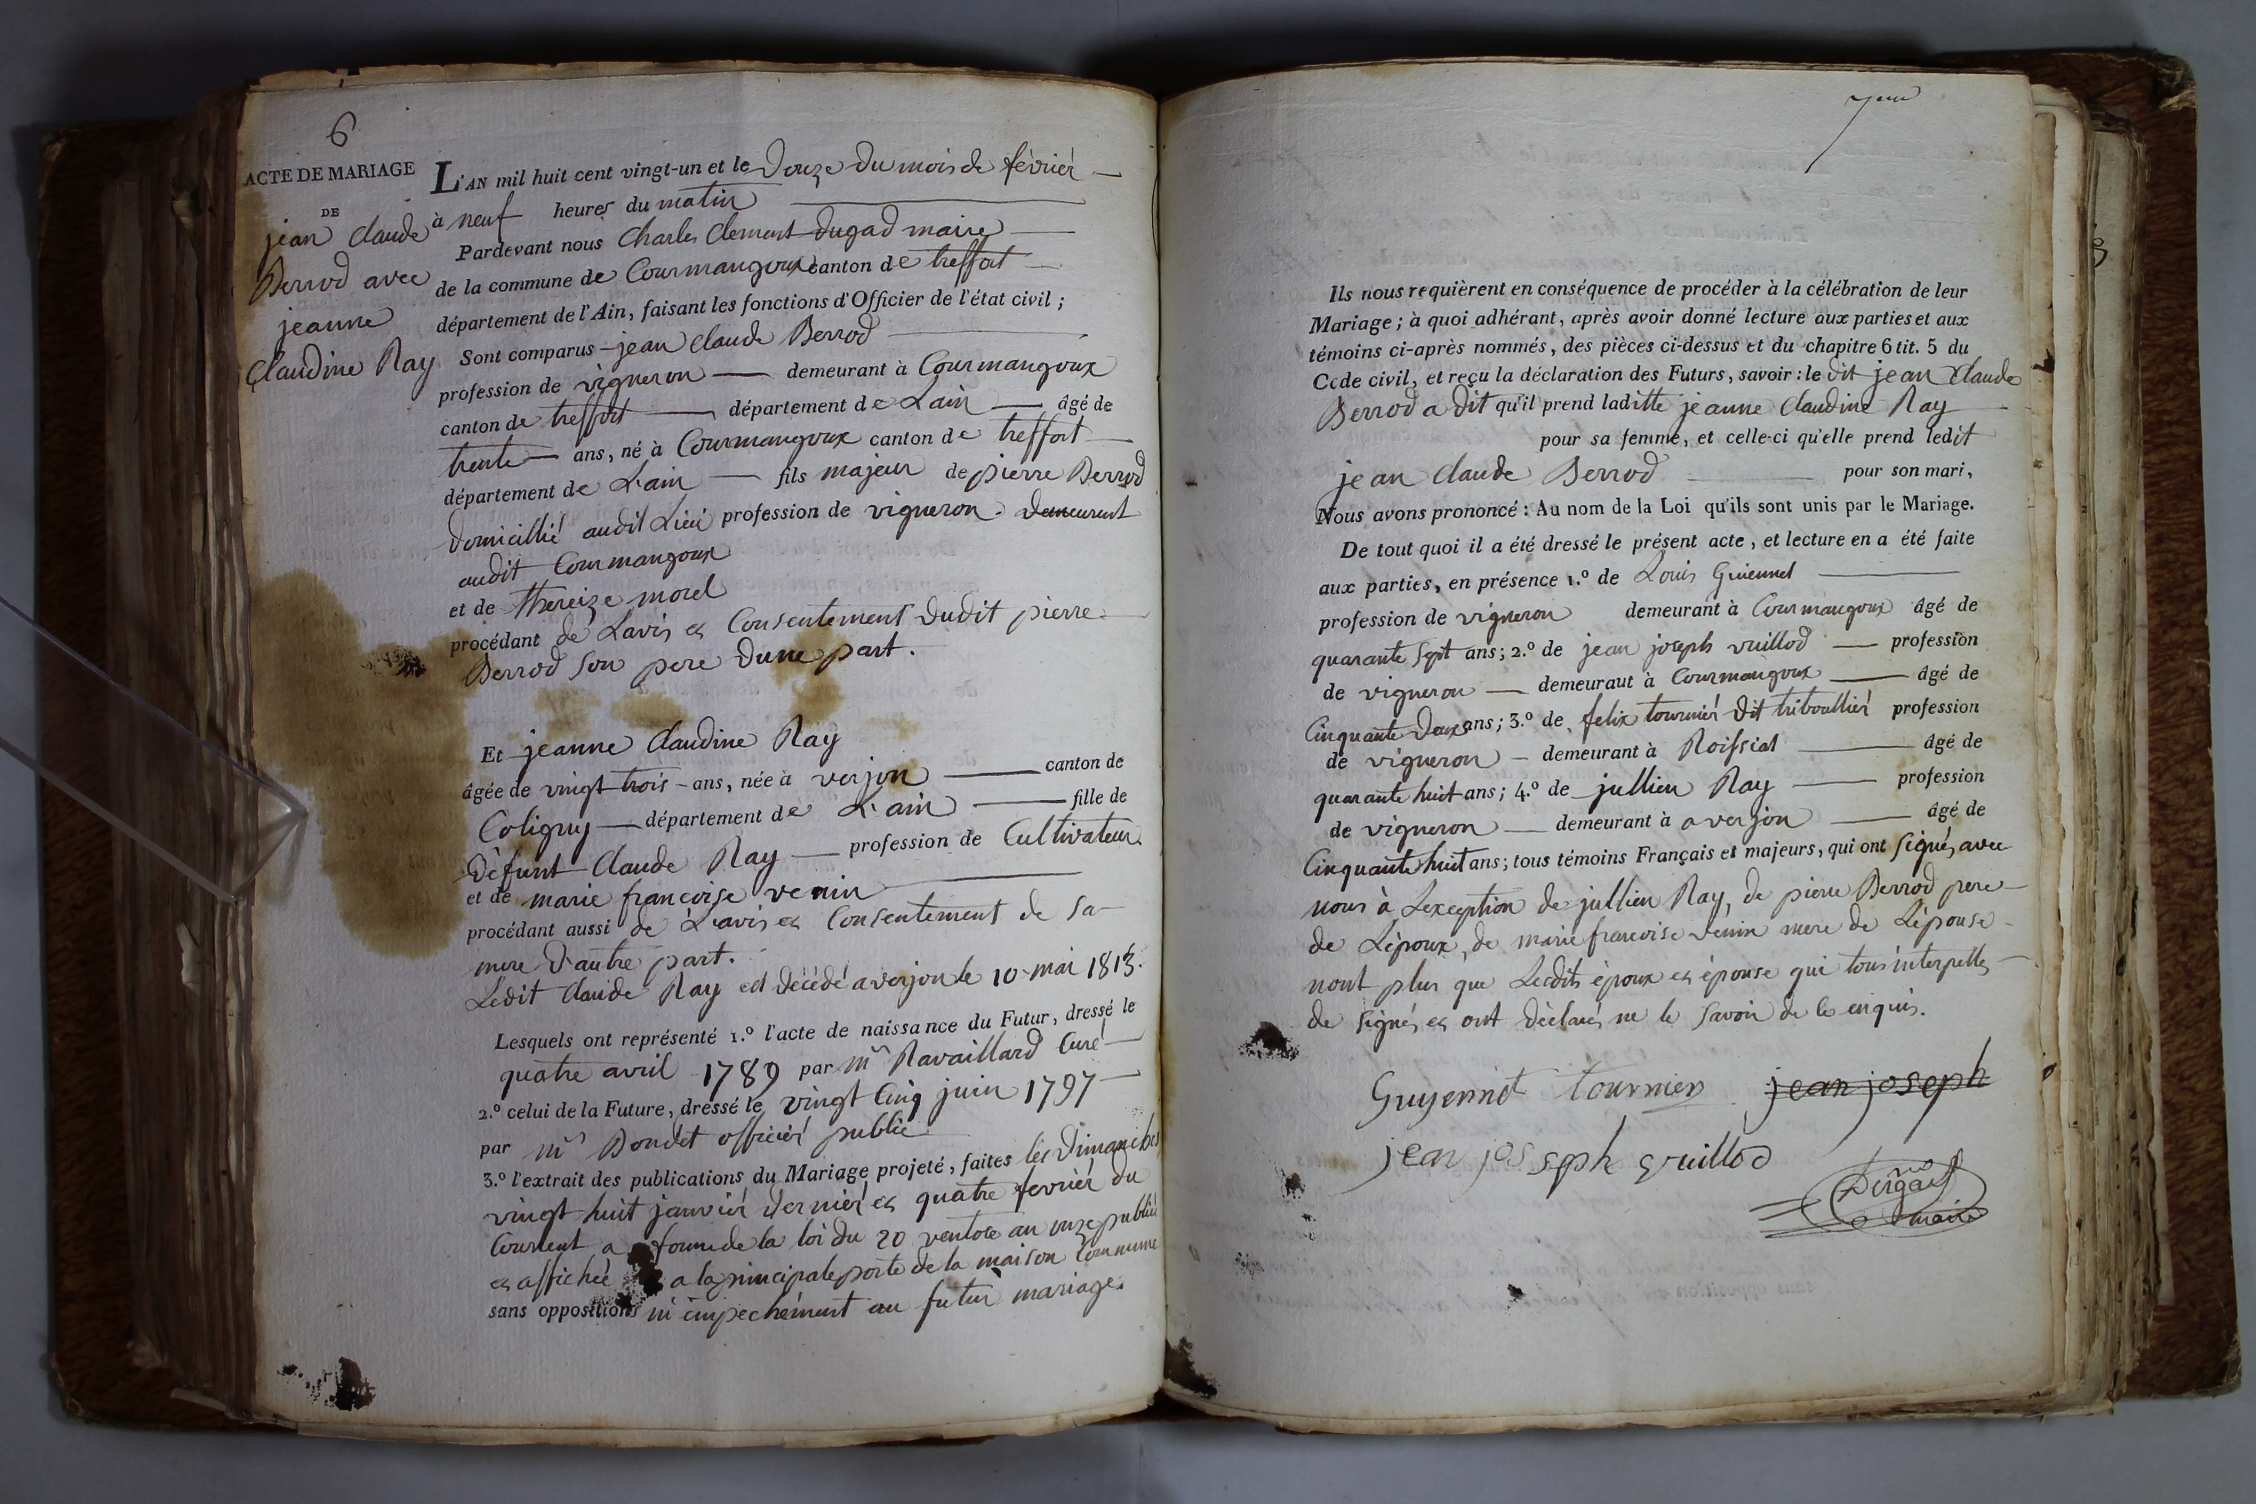 6
ACTE DE MARIAGE
DE
jean claude
Berrod avec
jeanne
Claudine Ray
L'AN mil huit cent vingt-un et le Douze du mois de février
à neuf heures du matin
Pardevant nous Charles Clement Dugad maire
de la commune de Courmangoux canton de treffort
département de l'Ain, faisant les fonctions d'Officier de l'état civil ;
Sont comparus jean claude Berrod
profession de vigneron demeurant à Courmangoux
canton de treffort département de Lain âgé de
trente ans, né à Courmangoux canton de treffort
département de L'ain fils majeur de pierre Berrod
domicillié audit Lieu profession de vigneron demeurant
audit Courmangoux
et de thereize morel
procédant de Lavis et Consentement dudit pierre
Berrod son pere dune part.
Et jeanne Claudine Ray
âgée de vingt trois ans, née à verjon canton de
Coligny département de L'ain fille de
Défunt Claude Ray profession de Cultivateur
et de marie françoise venin
procédant aussi de L'avis et Consentement de sa
mere d'autre part.
Ledit Claude Ray est décédé a verjon le 10 mai 1813.
Lesquels ont représenté 1.° l'acte de naissance du Futur, dressé le
quatre avril 1789 par mr Ravaillard Curé
2.° celui de la Future, dressé le vingt Cinq juin 1797
par mr Dondet officier public
3.° l'extrait des publications du Mariage projeté, faites les Dimanches
vingt huit janvier dernier et quatre fevrier du
Courrent a forme de la loi du 20 ventose an onze publiée
et affichée a la principale porte de la maison Commune
sans oppositions ni empechement au futur mariage.
7eme
Ils nous requièrent en conséquence de procéder à la célébration de leur
Mariage ; à quoi adhérant, après avoir donné lecture aux parties et aux
témoins ci-après nommés, des pièces ci-dessus et du chapitre 6 tit. 5 du
Code civil, et reçu la déclaration des Futurs, savoir : le dit jean Claude
Berrod a dit qu'il prend laditte jeanne Claudine Ray
pour sa femme, et celle-ci qu'elle prend ledit
jean Claude Berrod pour son mari,
Nous avons prononcé : Au nom de la Loi qu'ils sont unis par le Mariage.
De tout quoi il a été dressé le présent acte, et lecture en a été faite
aux parties, en présence 1.° de Louis Guiennet
profession de vigneron demeurant à Courmangoux âgé de
quarante sept ans ; 2.° de jean joseph vuillod profession
de vigneron demeurant à Courmangoux âgé de
Cinquante Deux ans ; 3.° de felix tournier dit triboullier profession
de vigneron demeurant à Roissiat âgé de
quarante huit ans ; 4.° de jullien Ray profession
de vigneron demeurant à a verjon âgé de
Cinquante huit ans ; tous témoins Français et majeurs, qui ont signés avec
nous à Lexception de jullien Ray, de pierre Berrod pere
de Lépoux, de marie francoise venin mere de Lépouse
nont plus que Lesdits époux et épouse qui tous interpellés
de signés et ont déclarés ne le savoir de ce enquis.
Guyennet tournier jean joseph
jean josseph vuillod
Dugad
maire